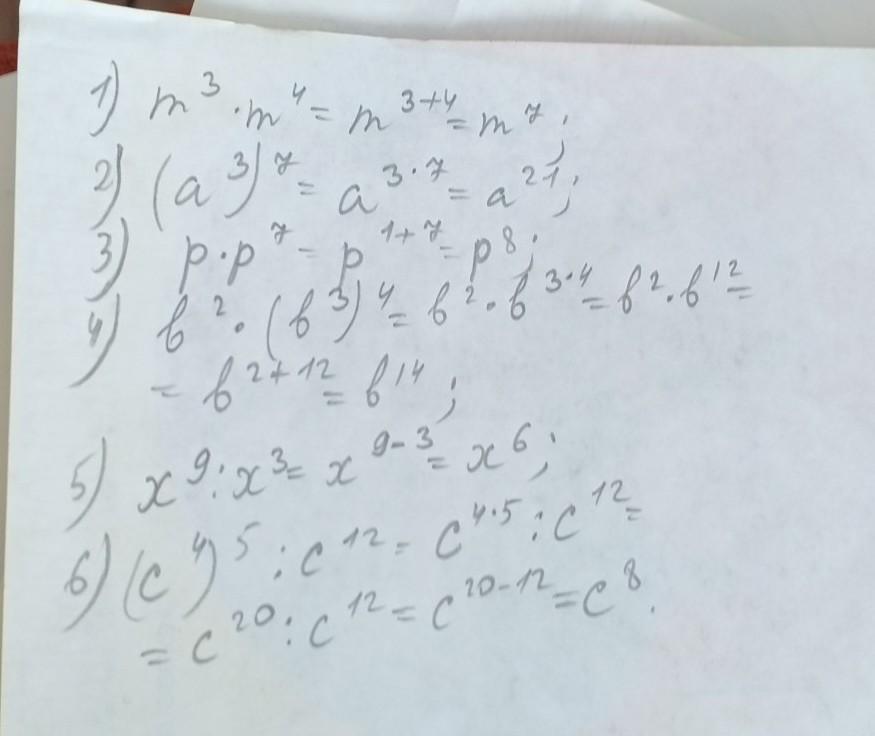 1) m³ · m⁴ = m³⁺⁴ = m⁷;
2) (a³)⁷ = a³˙⁷ = a²¹;
3) p · p⁷ = p¹⁺⁷ = p⁸;
4) b² · (b³)⁴ = b² · b³˙⁴ = b² · b¹² =
= b²⁺¹² = b¹⁴;
5) x⁹ : x³ = x⁹⁻³ = x⁶;
6) (c⁴)⁵ : c¹² = c⁴˙⁵ : c¹² =
= c²⁰ : c¹² = c²⁰⁻¹² = c⁸.